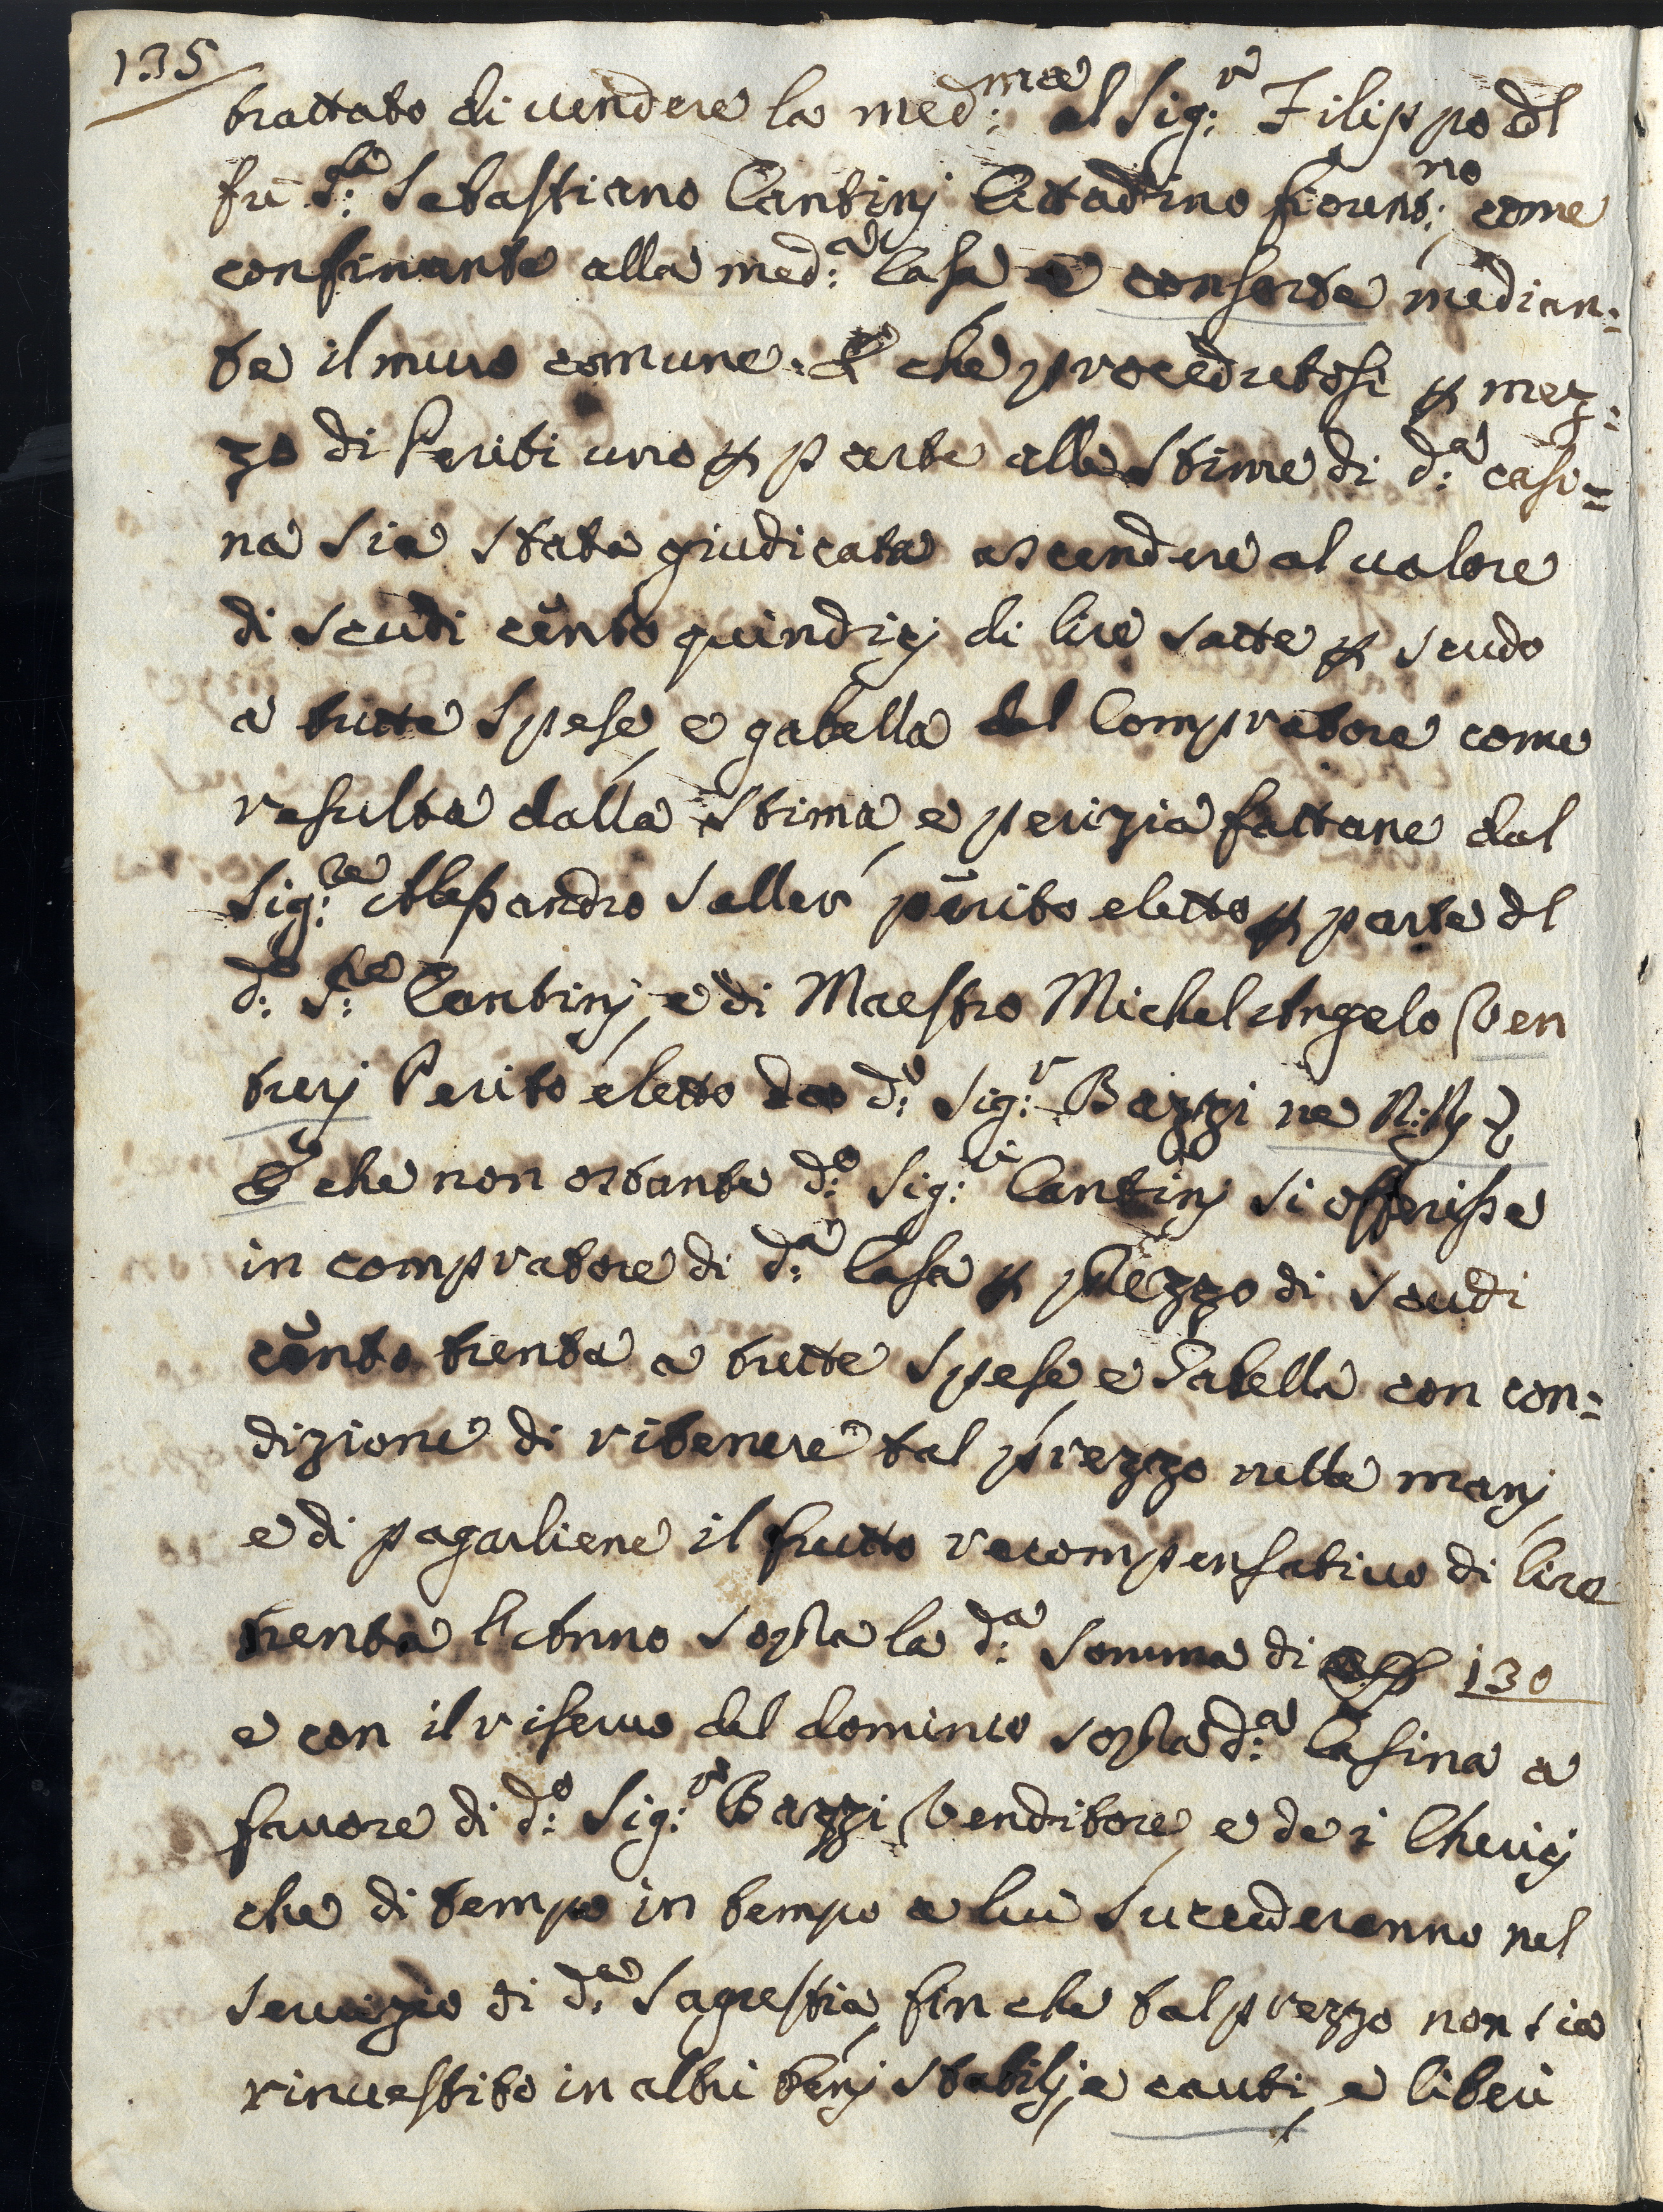 135
trattato di vendere la med:ma al Sig:r Filippo dl
fù S:r Sebastiano Cantinj Cittadino fiorent:no come
confinante alla med:a Casa e consorte median:
te il muro comune. E che procedutosi p mez:
zo di Periti uno p parte alle stime di d:a casi=
na sia stata giudicata ascendere al valore
di scudi cento quindicj di lire sette p scudo
a tutte spese, e gabella del Compratore come
resulta dalla stima, e perizia fattane dal
Sig:re Alessandro Saller perito eletto p parte dl
d:o S:re Cantinj, e di Maestro Michel Angelo Ven
turj Perito eletto da d:o Sig:r Bazzi ne R:Rj
E che non ostante d:o Sig:re Cantinj si offerisse
in compratore di d:a Casa p prezzo di scudi
cento trenta a tutte spese e Gabella con con:
dizione di ritenere tal prezzo nelle manj,
e di pagarliene il frutto recompensativo di lire
trenta l'Anno sopra la d:a Somma di 130
e con il riservo del dominio sopra d:a Casina a
favore di d:o Sig:re Bazzi Venditore, e de i Chericj
che di tempo in tempo a lui succederanno nel
servizio di d:a Sagrestia, fin che tal prezzo non sia
rinvestito in altri benj stabilj, e cauti, e liberi